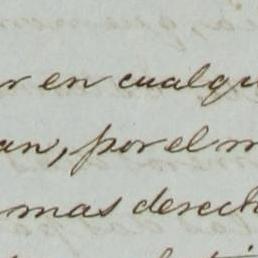 r en cualqu
an, por el m
mas derech